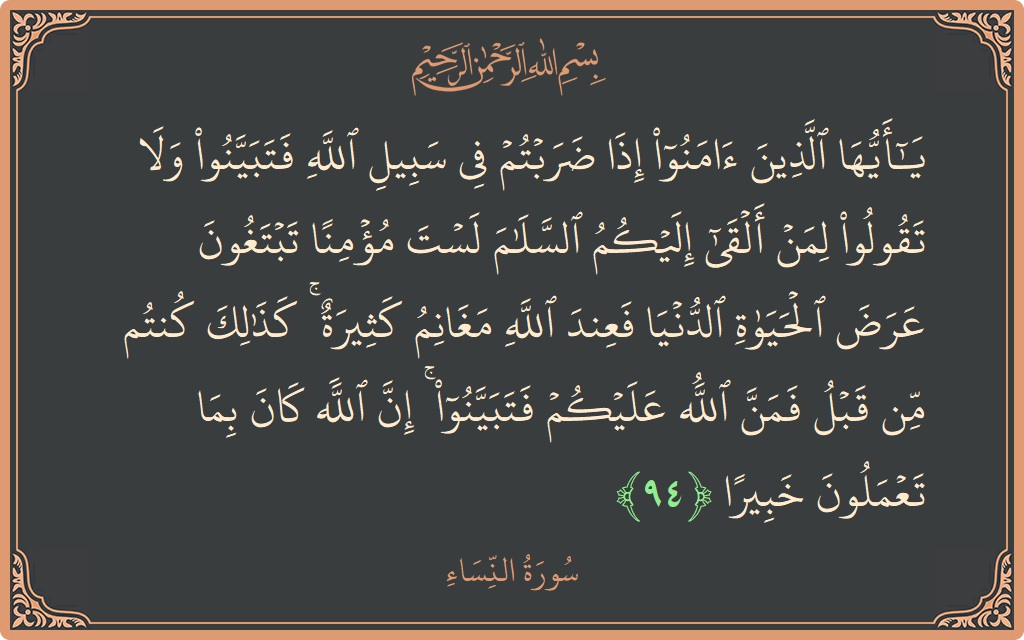 بِسْمِ اللَّهِ الرَّحْمَٰنِ الرَّحِيمِ
يَـٰٓأَيُّهَا ٱلَّذِينَ ءَامَنُوٓا۟ إِذَا ضَرَبْتُمْ فِى سَبِيلِ ٱللَّهِ فَتَبَيَّنُوا۟ وَلَا
تَقُولُوا۟ لِمَنْ أَلْقَىٰٓ إِلَيْكُمُ ٱلسَّلَـٰمَ لَسْتَ مُؤْمِنًا تَبْتَغُونَ
عَرَضَ ٱلْحَيَوٰةِ ٱلدُّنْيَا فَعِندَ ٱللَّهِ مَغَانِمُ كَثِيرَةٌ ۚ كَذَٰلِكَ كُنتُم
مِّن قَبْلُ فَمَنَّ ٱللَّهُ عَلَيْكُمْ فَتَبَيَّنُوٓا۟ ۚ إِنَّ ٱللَّهَ كَانَ بِمَا
تَعْمَلُونَ خَبِيرًا ﴿٩٤﴾
سُورَةُ النِّسَاءِ